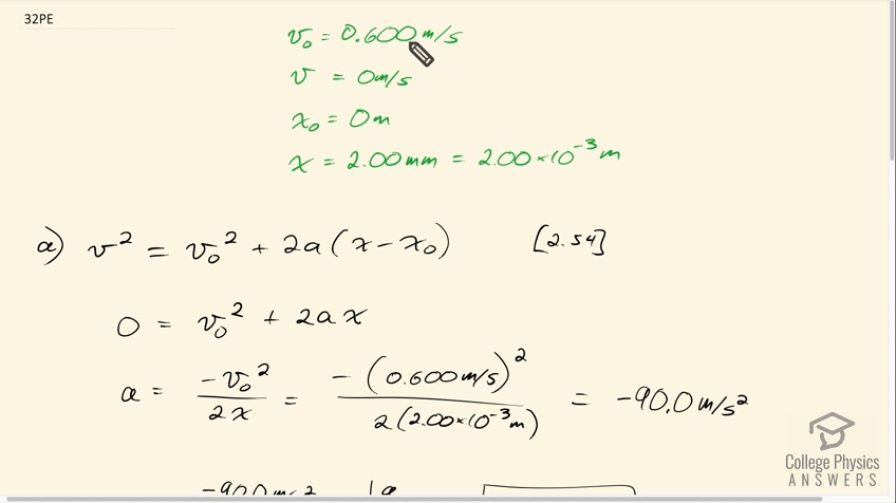 32PE
v₀ = 0.600 m/s
v = 0 m/s
x₀ = 0 m
x = 2.00 mm = 2.00 × 10⁻³ m
a) v² = v₀² + 2a(x - x₀) [2.54]
0 = v₀² + 2ax
a = -v₀² / 2x = -(0.600 m/s)² / 2(2.00 × 10⁻³ m) = -90.0 m/s²
College Physics
ANSWERS